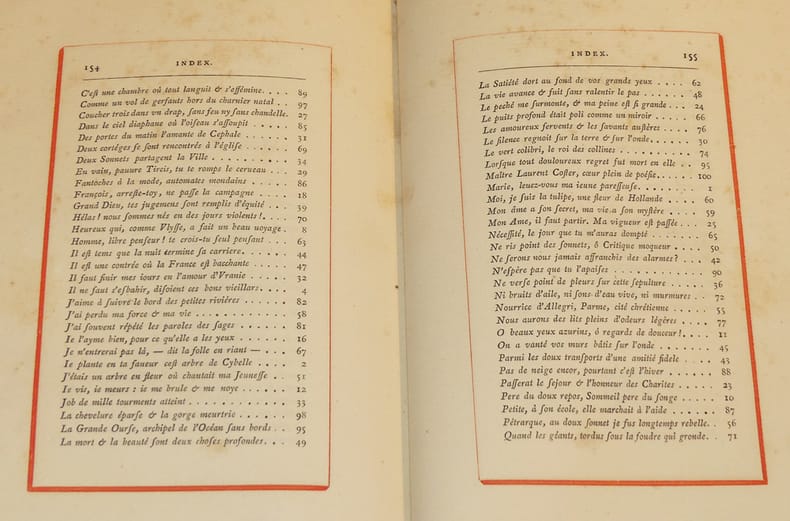 154 INDEX.
C'eſt une chambre où tout languit & s'eſſémine. . . . 89
Comme un vol de gerfauts hors du charnier natal . . 97
Coucher trois dans vn drap, ſans feu ny ſans chandelle. 27
Dans le ciel diaphane où l'oiſeau s'aſſoupit . . . . . 85
Des portes du matin l'amante de Cephale . . . . . 31
Deux cortéges ſe ſont rencontrés à l'égliſe . . . . . 69
Deux Sonnets partagent la Ville . . . . . . . . . 34
En vain, pauure Tircis, tu te romps le cerueau . . . 29
Fantoches à la mode, automates mondains . . . . . 86
François, arreſte-toy, ne paſſe la campagne . . . . 18
Grand Dieu, tes jugemens ſont remplis d'équité . . . 39
Hélas! nous ſommes nés en des jours violents!. . . . 70
Heureux qui, comme Vlyſſe, a fait un beau uoyage . 8
Homme, libre penſeur! te crois-tu ſeul penſant . . . 63
Il eſt tems que la nuit termine ſa carriere. . . . . . 44
Il eſt une contrée où la France eſt bacchante . . . . . 47
Il faut finir mes iours en l'amour d'Vranie . . . . . 32
Il ne faut s'eſbahir, diſoient ces bons vieillars. . . . 4
J'aime à ſuivre le bord des petites riviéres . . . . . . 82
J'ai perdu ma force & ma vie . . . . . . . . . . 58
J'ai ſouvent répété les paroles des ſages . . . . . . 81
Ie l'ayme bien, pour ce qu'elle a les yeux . . . . . 16
Je n'entrerai pas là, — dit la folle en riant — . . . . 67
Ie plante en ta faueur ceſt arbre de Cybelle . . . . 2
J'étais un arbre en fleur où chantait ma Jeuneſſe . . 51
Ie vis, ie meurs : ie me brule & me noye . . . . . 12
Job de mille tourments atteint . . . . . . . . . . 33
La chevelure éparſe & la gorge meurtrie . . . . . . 98
La Grande Ourſe, archipel de l'Océan ſans bords . . 95
La mort & la beauté ſont deux choſes profondes. . . 49
INDEX. 155
La Satiété dort au fond de vos grands yeux . . . . 62
La vie avance & fuit ſans ralentir le pas . . . . . . 48
Le peché me ſurmonte, & ma peine eſt ſi grande . . . 24
Le puits profond était poli comme un miroir . . . . 66
Les amoureux fervents & les ſavants auſtères . . . . 76
Le ſilence regnoit ſur la terre & ſur l'onde. . . . . . 30
Le vert colibri, le roi des collines . . . . . . . . 74
Lorſque tout douloureux regret fut mort en elle . . 95
Maître Laurent Coſter, cœur plein de poéſie. . . . . . 100
Marie, leuez-vous ma ieune pareſſeuſe. . . . . . . 1
Moi, je ſuis la tulipe, une fleur de Hollande . . . . 60
Mon âme a ſon ſecret, ma vie a ſon myſtère . . . . 59
Mon Ame, il faut partir. Ma vigueur eſt paſſée . . . 25
Néceſſité, le jour que tu m'auras dompté . . . . . . 65
Ne ris point des ſonnets, ô Critique moqueur . . . . 50
Ne ſerons nous jamais affranchis des alarmes? . . . 42
N'eſpère pas que tu l'apaiſes . . . . . . . . . . 90
Ne verſe point de pleurs ſur cette ſepulture . . . . . 36
Ni bruits d'aile, ni ſons d'eau vive, ni murmures . . 72
Nourrice d'Allegri, Parme, cité chrétienne . . . . . 55
Nous aurons des lits pleins d'odeurs légères . . . . 77
O beaux yeux azurins, ô regards de douceur!. . . . 11
On a vanté vos murs bâtis ſur l'onde . . . . . . . 45
Parmi les doux tranſports d'une amitié fidele . . . . 43
Pas de neige encor, pourtant c'eſt l'hiver . . . . . . 88
Paſſerat le ſejour & l'honneur des Charites . . . . . 23
Pere du doux repos, Sommeil pere du ſonge . . . . . 10
Petite, à ſon école, elle marchait à l'aide . . . . . . 87
Pétrarque, au doux ſonnet je fus longtemps rebelle. . 56
Quand les géants, tordus ſous la foudre qui gronde. . 71